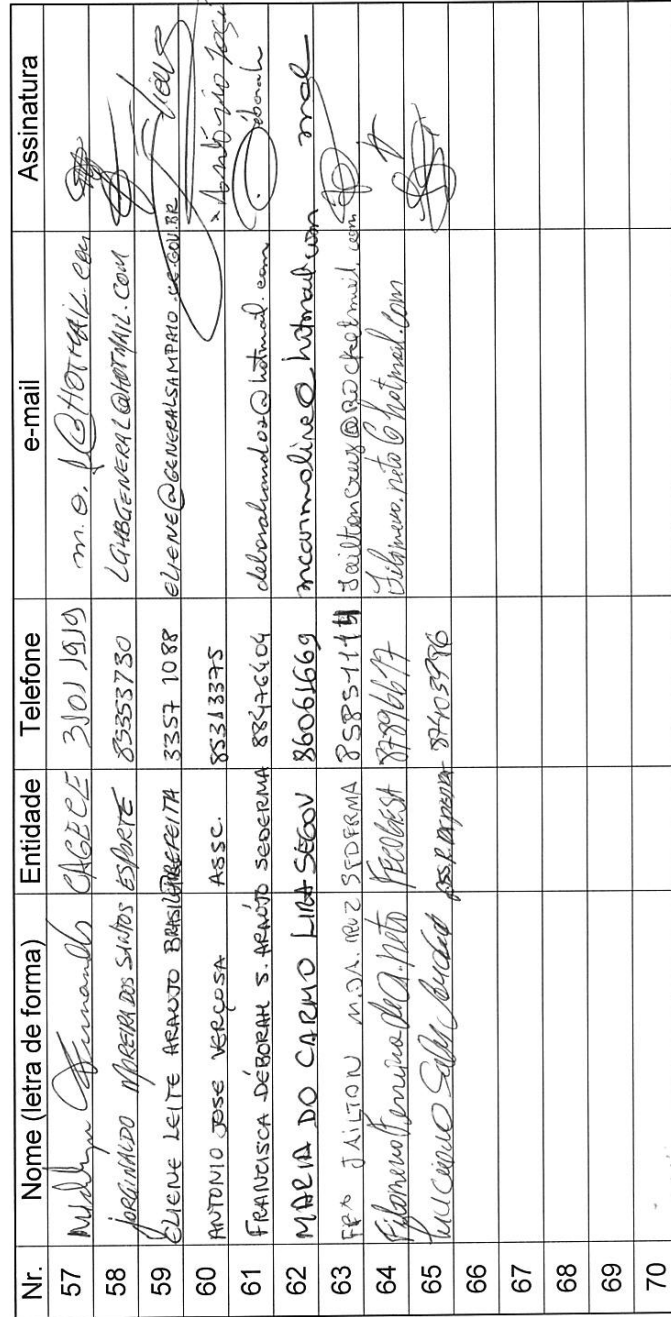 Nr. Nome (letra de forma) Entidade Telefone e-mail Assinatura
57 Fernandes CAGECE 3101 1919 m.o.f@HOTMAIL.COM
58 JORGINALDO MOREIRA DOS SANTOS ESPORTE 85353730 LGHBGENERAL@HOTMAIL.COM
59 ELIENE LEITE ARAUJO BRASIL PREFEITA 3357 1088 ELIENE@GENERALSAMPAIO.CE.GOV.BR Eliene
60 ANTONIO JOSE VERÇOSA ASSC. 85313375 x Antônio José
61 FRANCISCA DÉBORAH S. ARAÚJO SEDERMA 88476404 deborahandos@hotmail.com Déborah
62 MARIA DO CARMO LIRA SEGOV 86061669 mcarmolira@hotmail.com
63 FRX JAILTON M. DA CRUZ SEDERMA 85851114 Jailtoncruz@rocketmail.com
64 Filomeno Ferreira de A. Neto FECOGESA 87896677 filomeno.neto@hotmail.com
65 Luciano 87403996
66
67
68
69
70